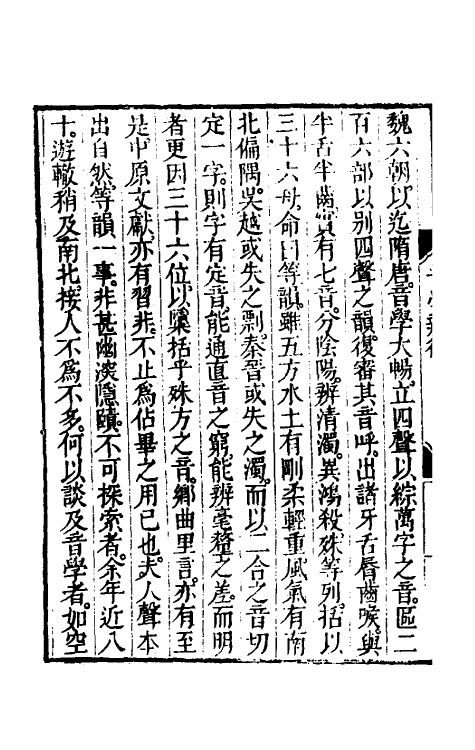 魏六朝以迄隋唐。音學大暢。立四聲以綜萬字之音。區二
百六部以別四聲之韻。復審其音呼。出諸牙舌脣齒喉。與
半舌半齒。實有七音。分陰陽。辨清濁。異鴻殺。殊等列。括以
三十六母。命曰等韻。雖五方水土有剛柔輕重。風氣有南
北偏隅。吳越或失之剽。秦晉或失之濁。而以二合之音切
定一字。則字有定音。能通直音之窮。能辨毫釐之差。而明
者更因三十六位。以檃括乎殊方之音。鄉曲里言。亦有至
是。中原文獻。亦有習非。不止爲佔畢之用已也。夫人聲本
出自然。等韻一事。非甚幽深隱賾。不可探索者。余年近八
十。遊轍稍及南北。接人不爲不多。何以談及音學者。如空